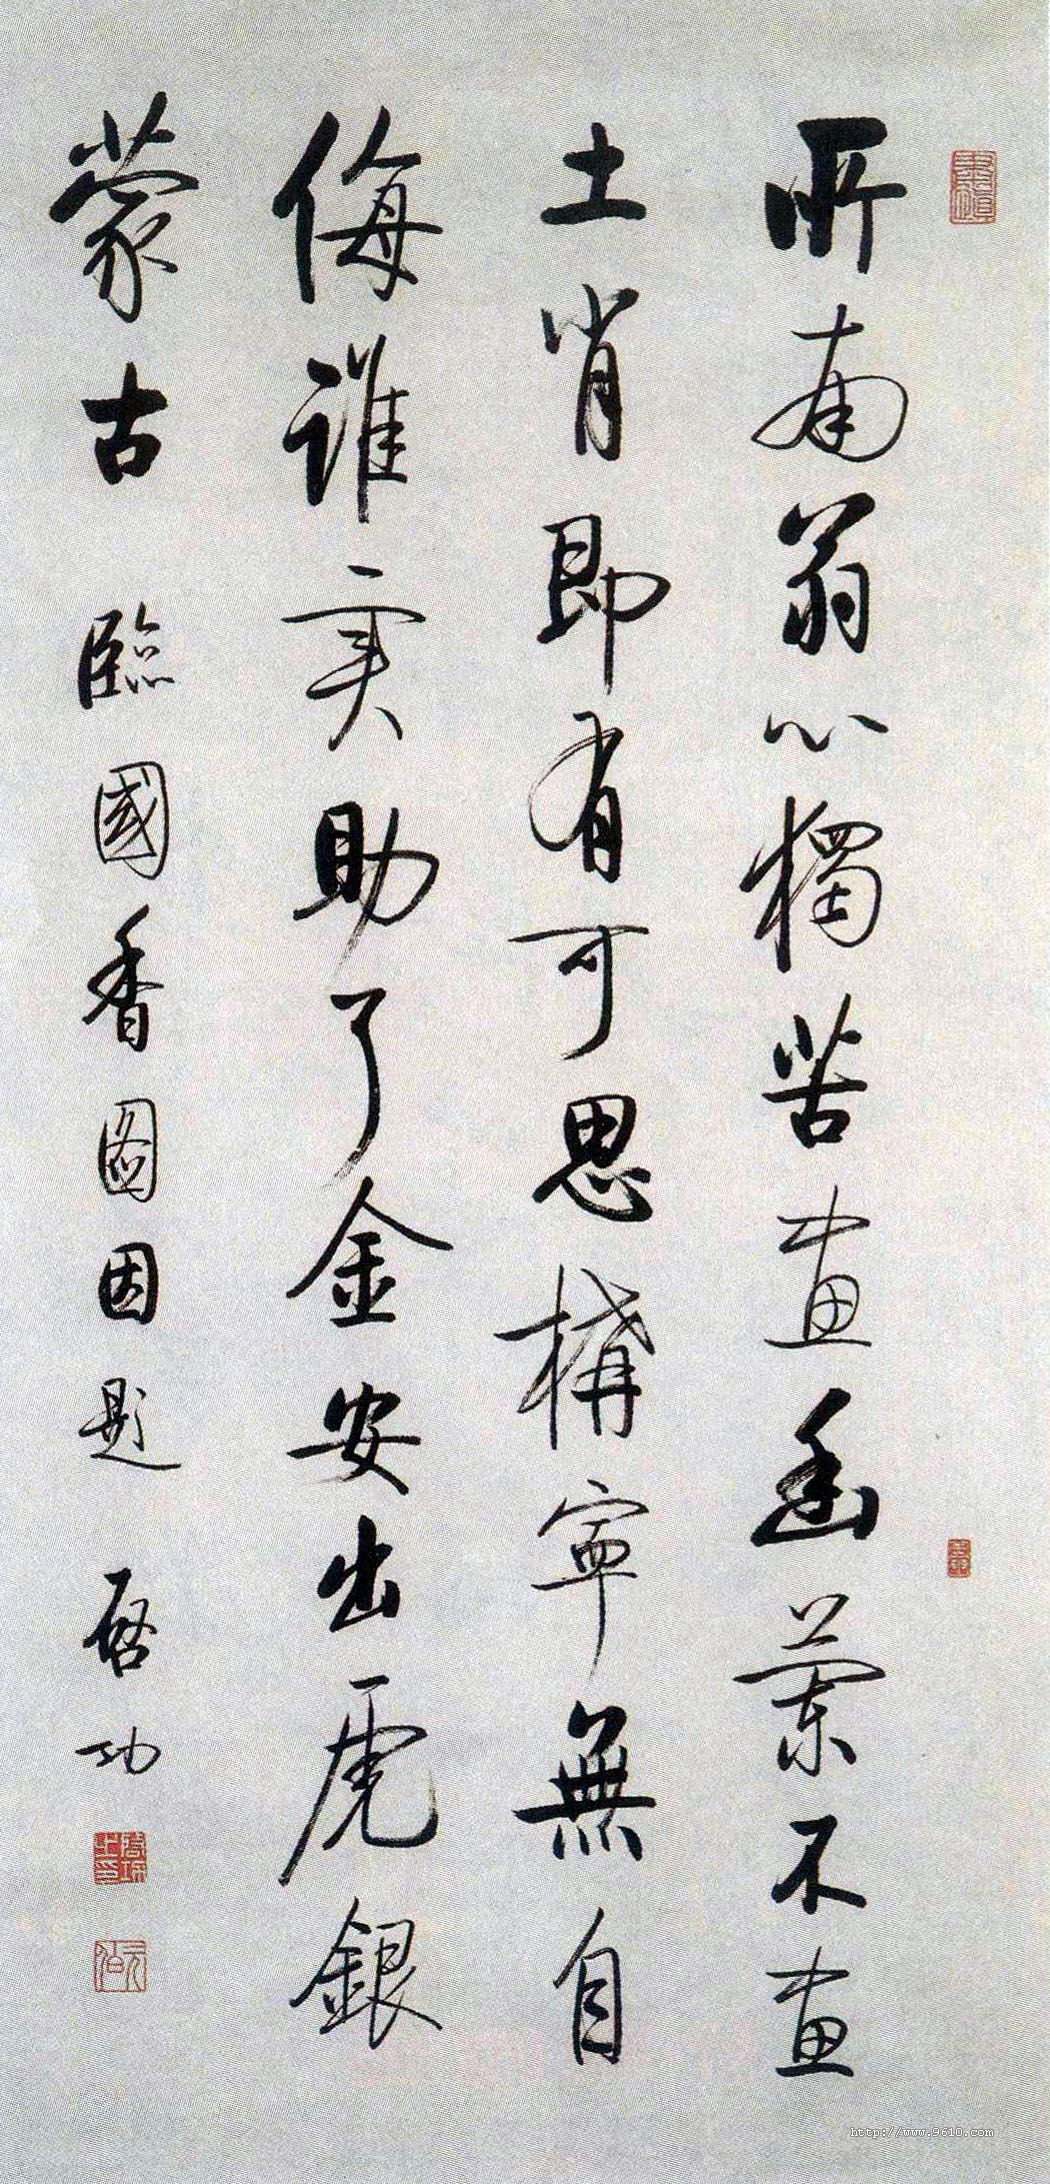 所南翁心獨苦畫幽蘭不畫
土肖即有可思構寧無自
侮誰実助了金安出虎銀
蒙古 臨國香圖因題 啓功
http://www.9610.com